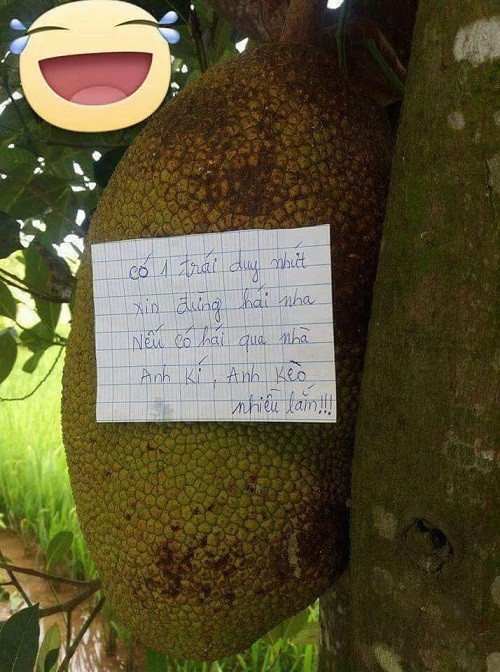 có 1 trái duy nhứt
xin đừng hái nha
Nếu có hái qua nhà
Anh Kí, Anh Kèo
nhiều lắm!!!